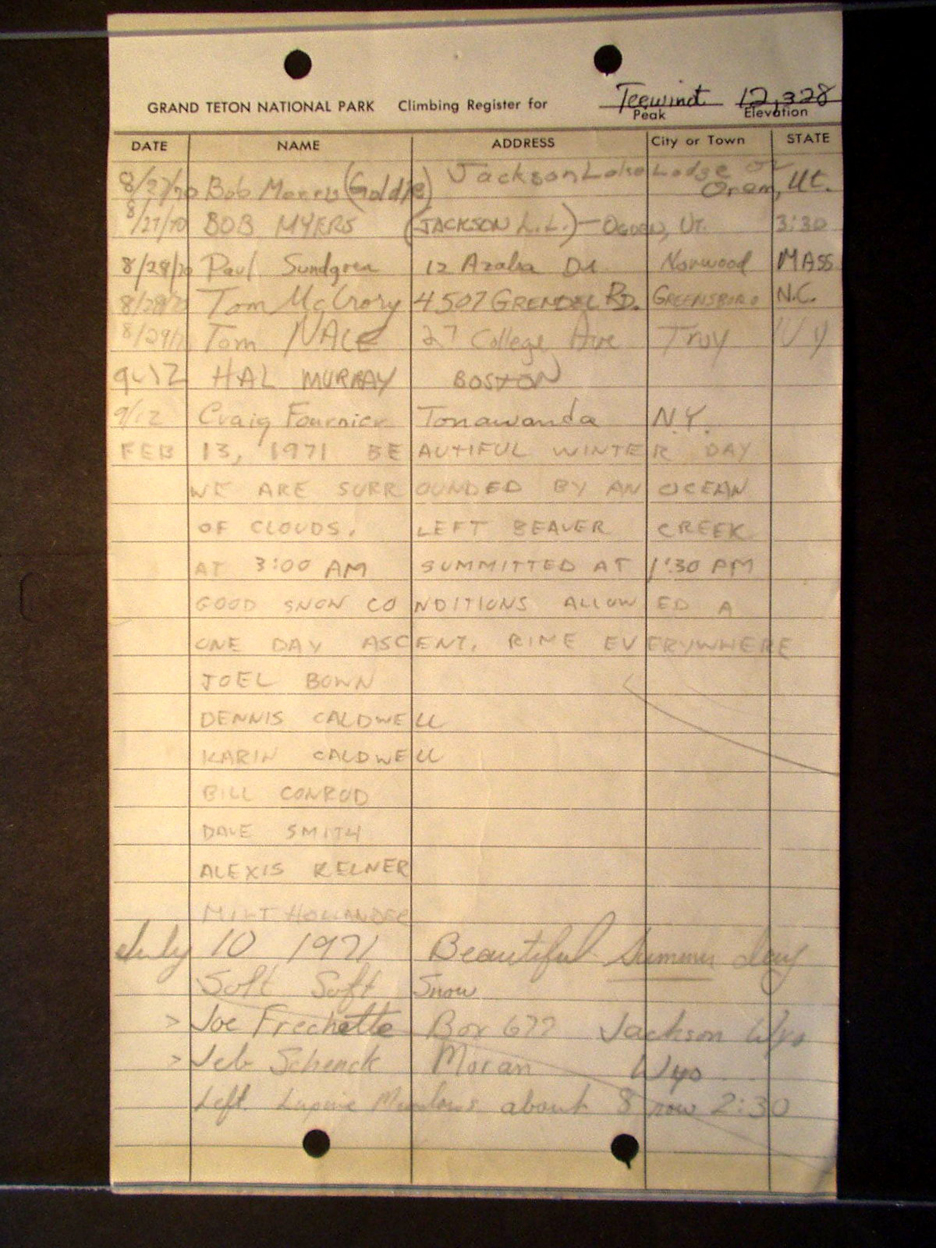 GRAND TETON NATIONAL PARK Climbing Register for Teewinot 12,328
Peak Elevation
DATE NAME ADDRESS City or Town STATE
8/27/70 Bob Morris (Goldie) Jackson Lake Lodge or Orem, Ut.
8/27/70 BOB MYERS (JACKSON L.L.) — OGDEN, UT. 3:30
8/28/70 Paul Sundgren 12 Azalea Dr. Norwood MASS
8/28/70 Tom McCrory 4507 GRENDEL RD. GREENSBORO N.C.
8/29/70 Tom NALE 27 College Ave Troy NY
9/12 HAL MURRAY BOSTON
9/12 Craig Fournier Tonawanda N.Y.
FEB 13, 1971 BEAUTIFUL WINTER DAY
WE ARE SURROUNDED BY AN OCEAN
OF CLOUDS. LEFT BEAVER CREEK
AT 3:00 AM SUMMITTED AT 1:30 PM
GOOD SNOW CONDITIONS ALLOWED A
ONE DAY ASCENT, RIME EVERYWHERE
JOEL BOWN
DENNIS CALDWELL
KARIN CALDWELL
BILL CONROD
DAVE SMITH
ALEXIS KELNER
MILT HOLLANDER
July 10 1971 Beautiful Summer day
Soft Soft Snow
> Joe Frechette Box 677 Jackson Wyo
> Jeb Schenck Moran Wyo
Left Lupine Meadows about 8 now 2:30